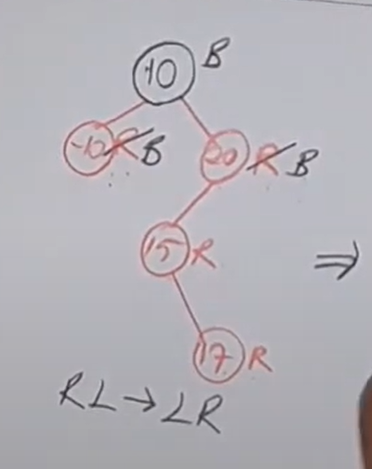 10 B
-10 R B 20 R B
15 R
17 R
RL → LR
⇒